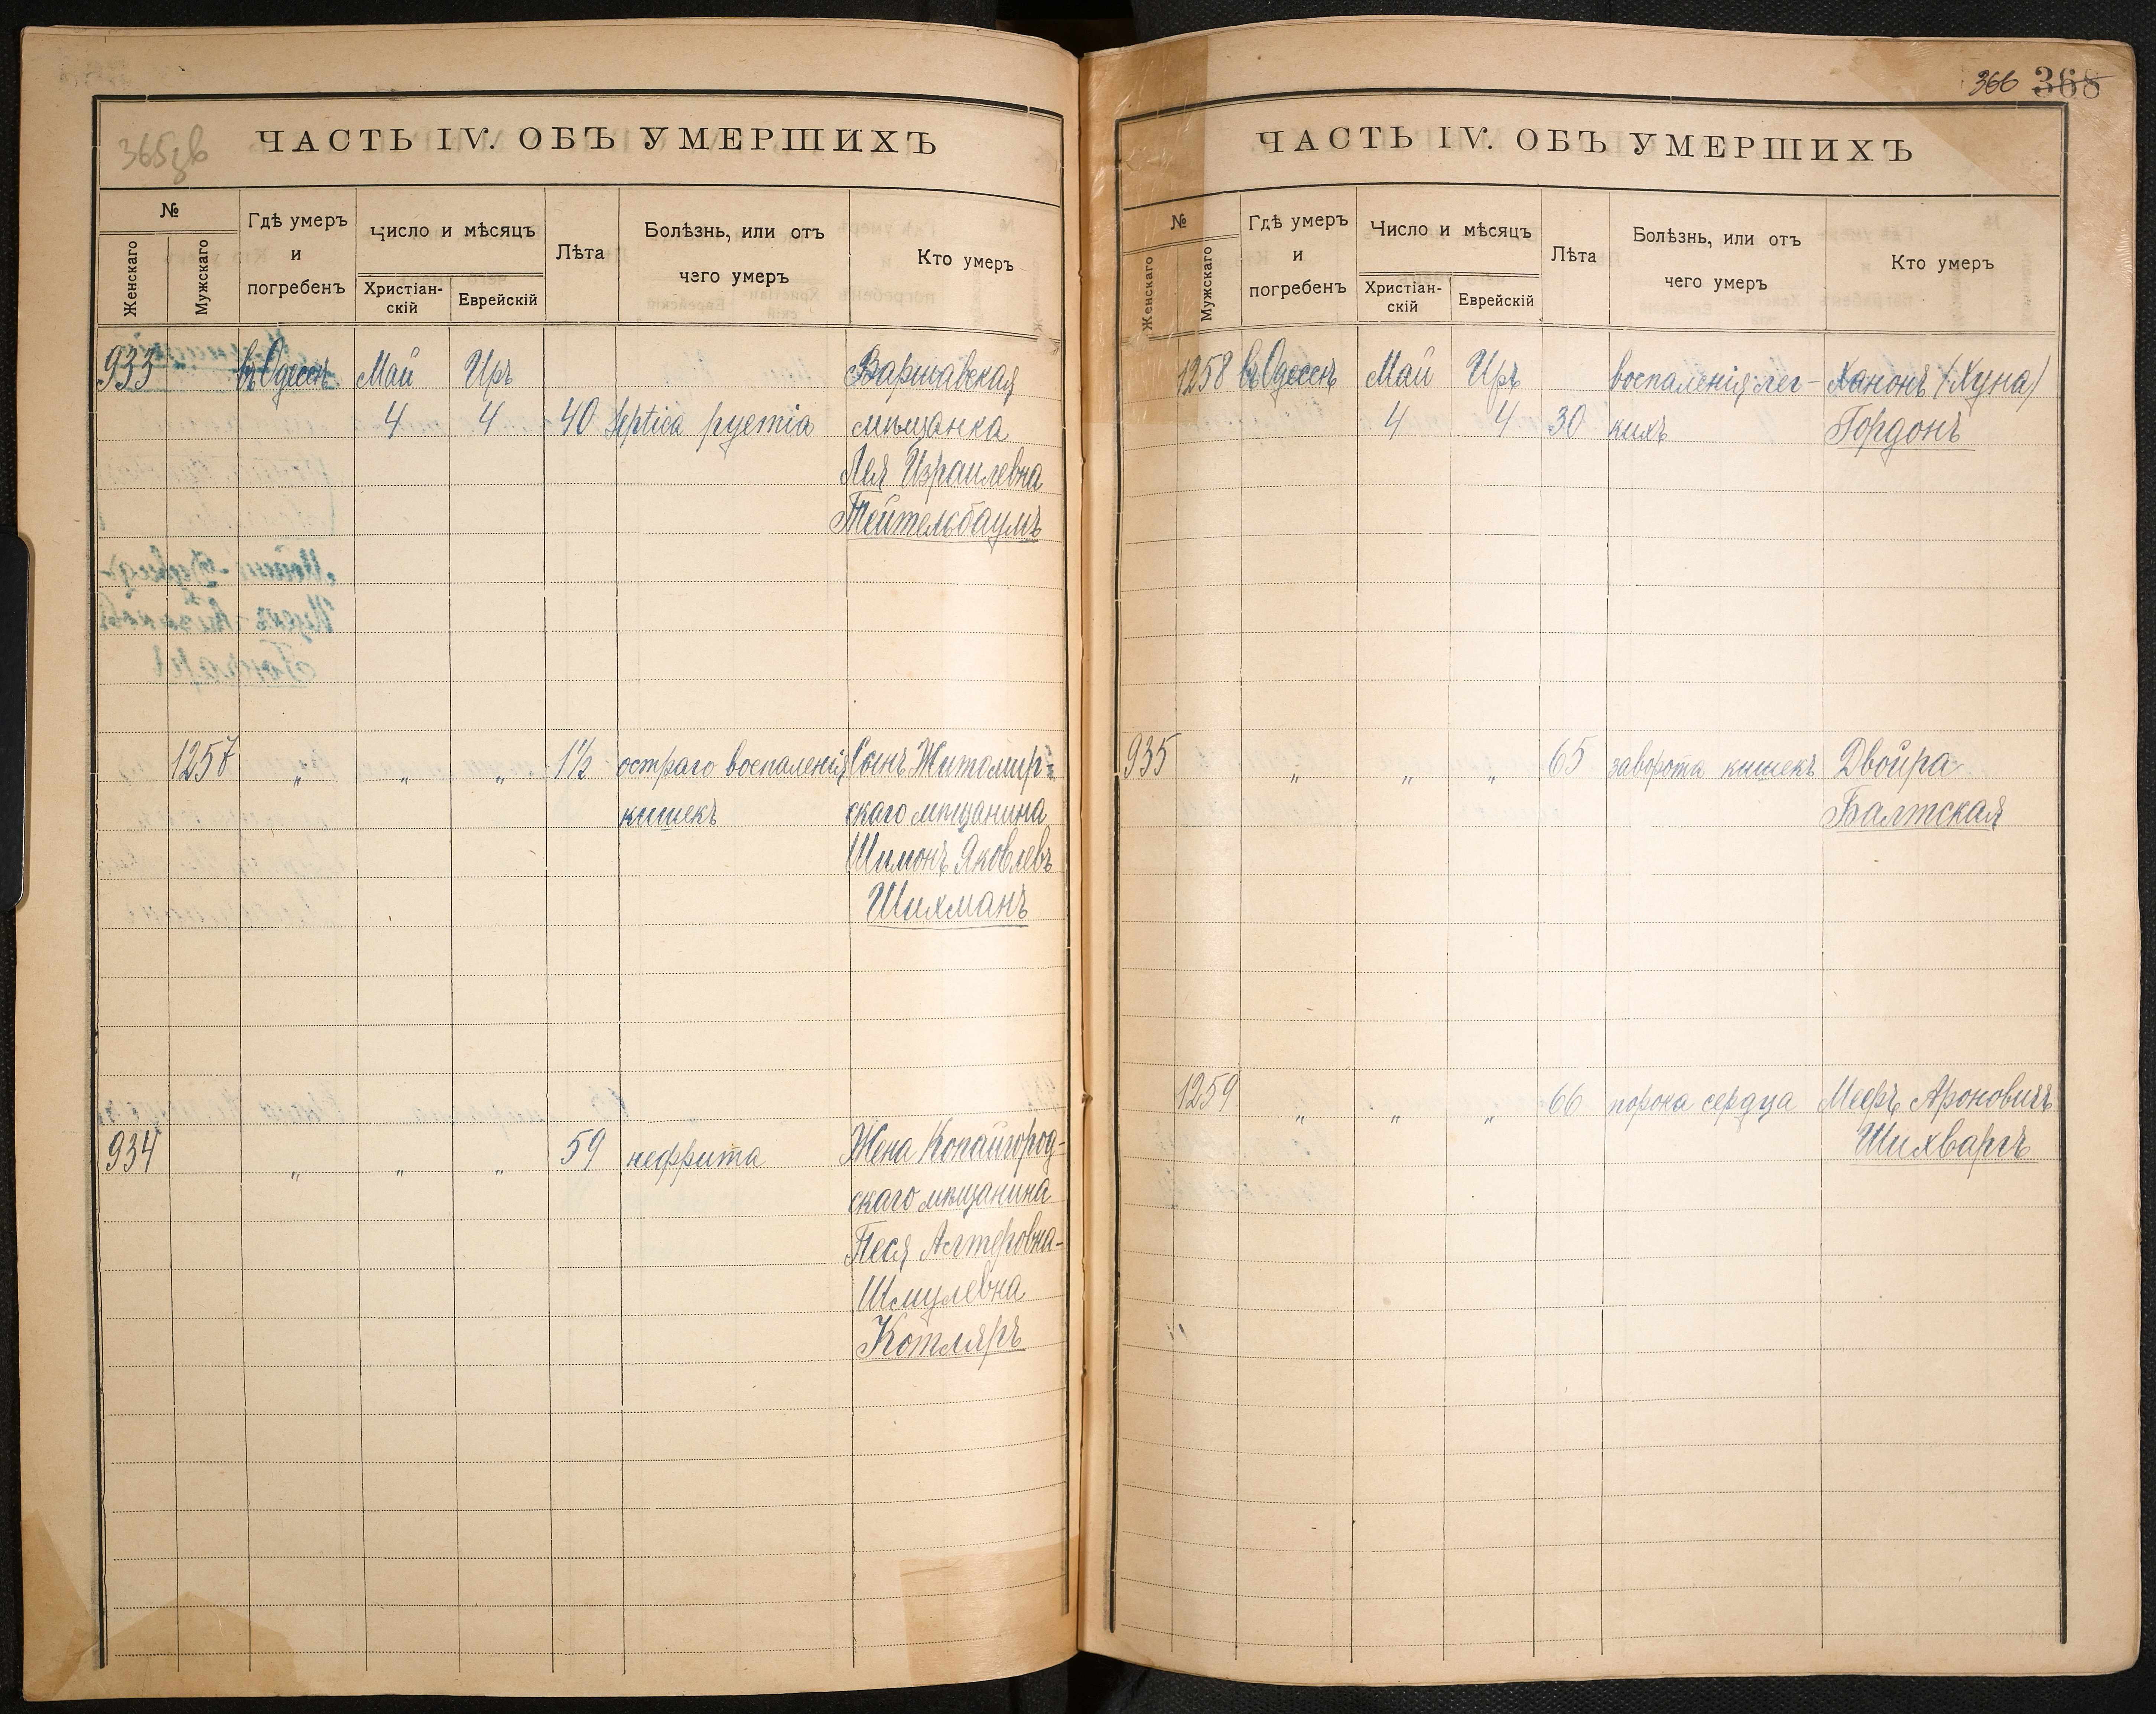 365зв
ЧАСТЬ IV. ОБЪ УМЕРШИХЪ
№
Женскаго
Мужскаго
Гдѣ умеръ
и
погребенъ
Число и мѣсяцъ
Христіан-
скій
Еврейскій
Лѣта
Болѣзнь, или отъ
чего умеръ
Кто умеръ
933 въ Одессѣ Май Иръ Варшавская
4 4 40 Septica pyemia мѣщанка
Лея Израилевна
Тейтельбаумъ
1257 " " " 1½ остраго воспаленія Сынъ Житомир=
кишекъ скаго мѣщанина
Шимонъ Яковлевъ
Шихманъ
934 " " " 59 нефрита Жена Копайгород-
скаго мѣщанина
Песя Алтеровна-
Шмулевна
Котляръ
366 368
ЧАСТЬ IV. ОБЪ УМЕРШИХЪ
№
Женскаго
Мужскаго
Гдѣ умеръ
и
погребенъ
Число и мѣсяцъ
Христіан-
скій
Еврейскій
Лѣта
Болѣзнь, или отъ
чего умеръ
Кто умеръ
1258 въ Одессѣ Май Иръ воспаленія лег- Ханонъ (Хуна)
4 4 30 кихъ Гордонъ
935 " " " 65 заворота кишекъ Двойра
Балтская
1259 " " " 66 порока сердца Мееръ Ароновичъ
Шихваргъ